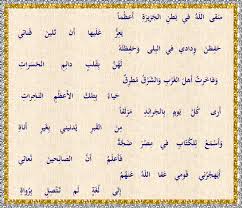 سَقَى اللهُ فِي بَطنِ الجَزِيرَةِ أَعظُماً
يَعِزُّ عَلَيها أَن تَلينَ قَناتي
حَفِظنَ وِدادي في البِلى وَحَفِظتُهُ
لَهُنَّ بِقَلبٍ دائِمِ الحَسَراتِ
وَفاخَرتُ أَهلَ الغَربِ وَالشَرقُ مُطرِقٌ
حَياءً بِتِلكَ الأَعظُمِ النَخِراتِ
أَرى كُلَّ يَومٍ بِالجَرائِدِ مَزلَقاً
مِنَ القَبرِ يُدنيني بِغَيرِ أَناةِ
وَأَسمَعُ لِلكُتّابِ في مِصرَ ضَجَّةً
فَأَعلَمُ أَنَّ الصائِحينَ نُعاتي
أَيَهجُرُني قَومي عَفا اللهُ عَنهُمُ
إِلى لُغَةٍ لَم تَتَّصِلِ بِرُواةِ